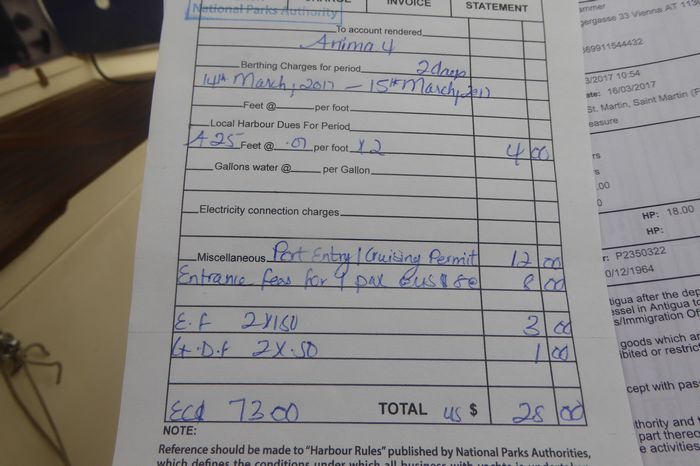 INVOICE
STATEMENT
National Parks Authority
To account rendered
Anima 4
Berthing Charges for period 2 days
14th March, 2017 – 15th March, 2017
Feet @ per foot
Local Harbour Dues For Period
A 25 Feet @ .07 per foot x 2 4 00
Gallons water @ per Gallon
Electricity connection charges
Miscellaneous Port Entry / Cruising Permit 12 00
Entrance fees for 9 pax @US$ 8 00
E.F 2x150 3 00
G.D.F 2x.50 1 00
ECD 73 00 TOTAL US $ 28 00
NOTE:
Reference should be made to "Harbour Rules" published by National Parks Authorities,
which defines the conditions under which all business with yachts is undertaken
ergasse 33 Vienna AT 113
69911544432
3/2017 10:54
ate: 16/03/2017
St. Martin, Saint Martin (F
easure
rs
.00
HP: 18.00
HP:
r: P2350322
0/12/1964
tigua after the dep
essel in Antigua to
s/Immigration Of
goods which ar
ibited or restric
cept with pas
thority and
part thereo
e activities